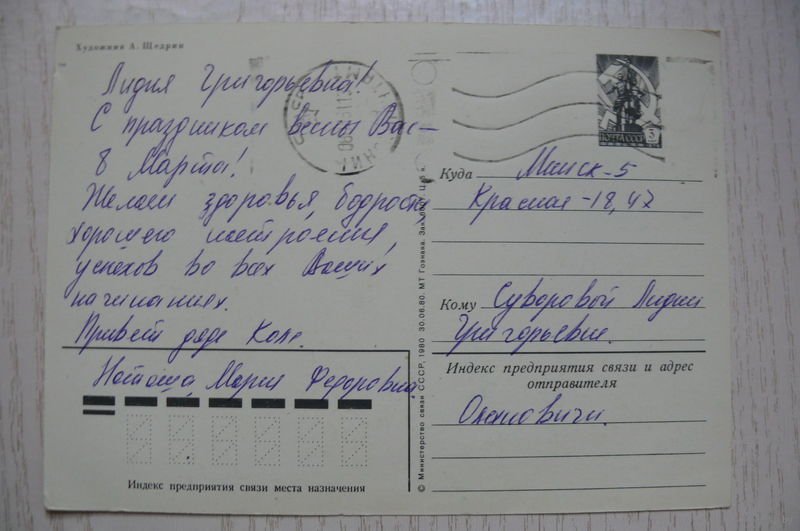 Художник А. Щедрин
Лидия Григорьевна!
С праздником весны Вас —
8 Марта!
Желаем здоровья, бодрости,
хорошего настроения,
успехов во всех Ваших
начинаниях.
Привет дяде Коле.
Наташа, Мария Федоровна
Индекс предприятия связи места назначения
© Министерство связи СССР, 1980 30.06.80. МТ Гознака.
ПОЧТА СССР 3
Куда Минск-5
Красная-18, 42
Кому Суворовой Лидии
Григорьевне.
Индекс предприятия связи и адрес
отправителя